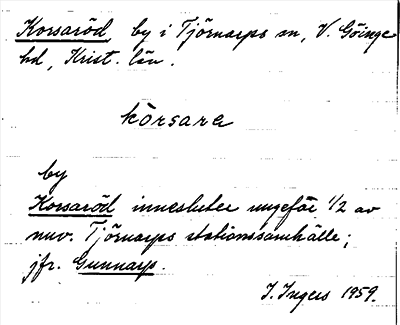 Korsaröd, by i Tjörnarps sn, V. Göinge
hd, Krist. län.
kòrsare
by
Korsaröd innesluter ungefär 1/2 av
nuv. Tjörnarps stationssamhälle;
jfr. Gunnarp.
I. Ingers 1959.